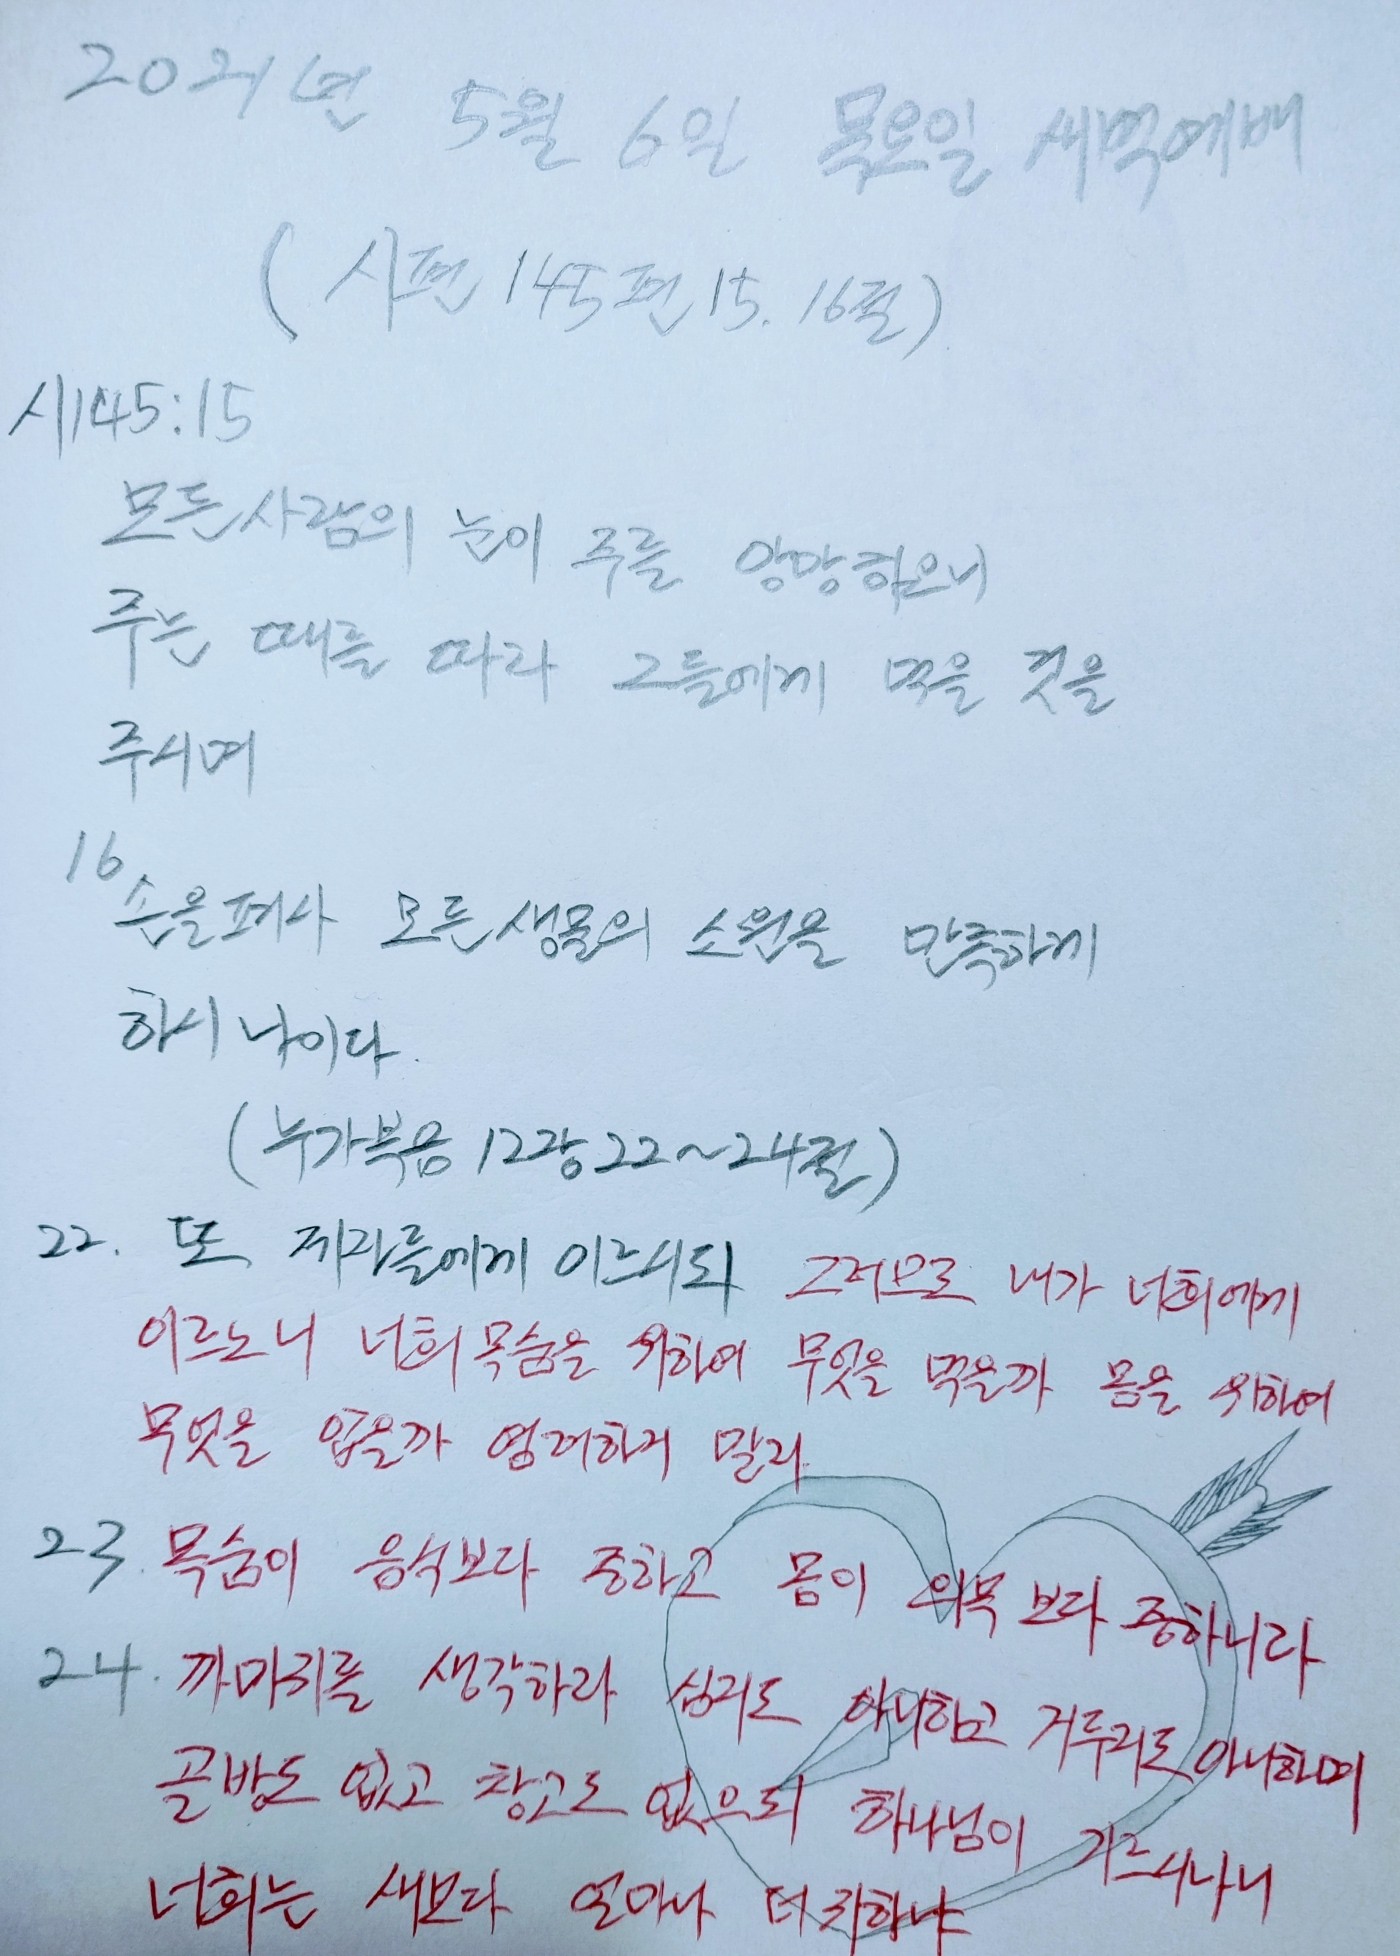 2021년 5월 6일 목요일 새벽예배
(시편 145편 15. 16절)
시145:15
모든 사람의 눈이 주를 앙망하오니
주는 때를 따라 그들에게 먹을 것을
주시며
16
손을 펴사 모든 생물의 소원을 만족하게
하시나이다.
(누가복음 12장 22~24절)
22. 또 제자들에게 이르시되 그러므로 내가 너희에게
이르노니 너희 목숨을 위하여 무엇을 먹을까 몸을 위하여
무엇을 입을까 염려하지 말라
23. 목숨이 음식보다 중하고 몸이 의복보다 중하니라
24. 까마귀를 생각하라 심지도 아니하고 거두지도 아니하며
골방도 없고 창고도 없으되 하나님이 기르시나니
너희는 새보다 얼마나 더 귀하냐